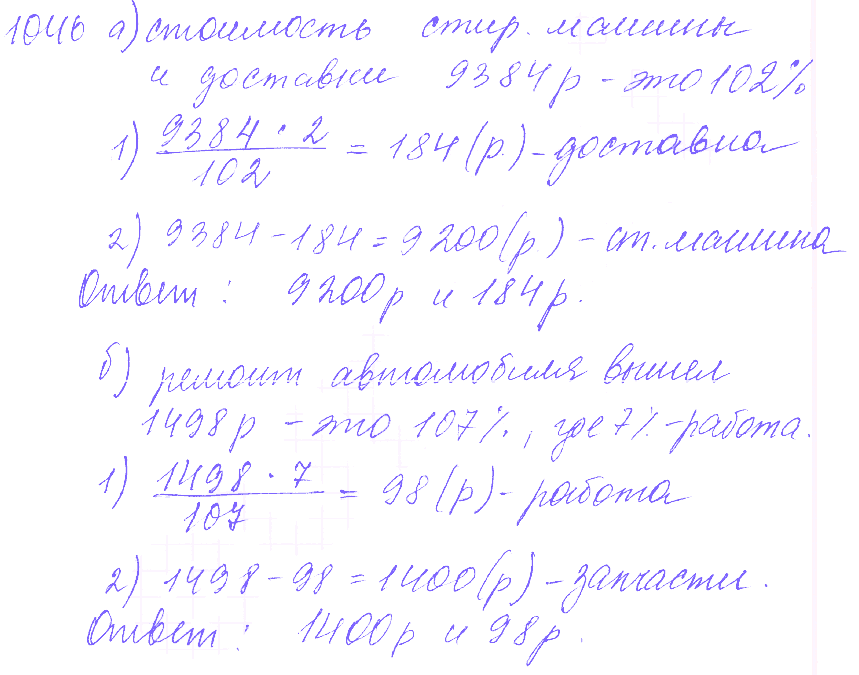 1046 а) стоимость стир. машины
и доставки 9384 р - это 102%
1) 9384 · 2 / 102 = 184 (р.) - доставка
2) 9384 - 184 = 9200 (р) - ст. машина
Ответ : 9200 р и 184 р.
б) ремонт автомобиля вышел
1498 р - это 107%, где 7% - работа.
1) 1498 · 7 / 107 = 98 (р) - работа
2) 1498 - 98 = 1400 (р) - запчасти.
Ответ : 1400 р и 98 р.